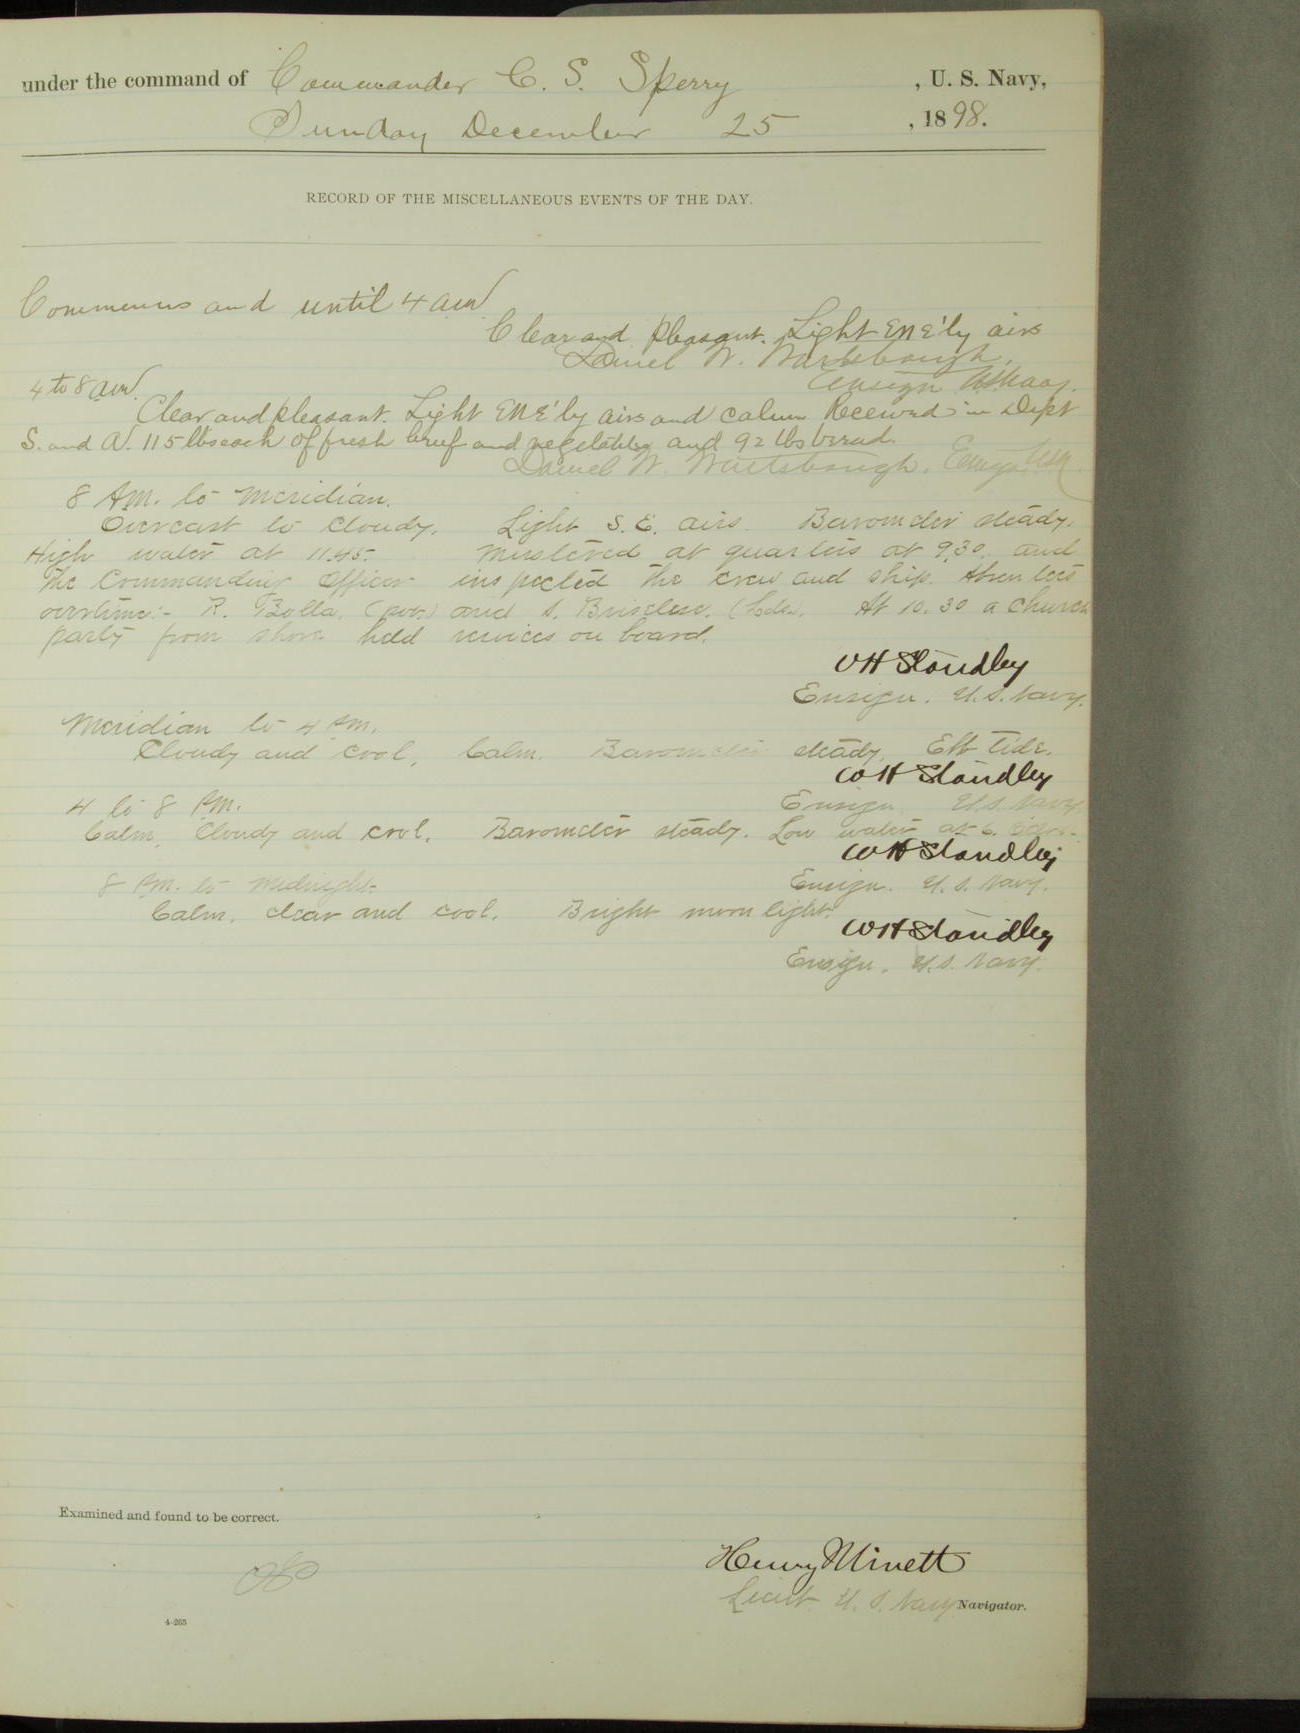 under the command of Commander C. S. Sperry , U. S. Navy,
Sunday December 25 , 1898.
RECORD OF THE MISCELLANEOUS EVENTS OF THE DAY.
Commences and until 4 am
Clear and pleasant. Light ENE'ly airs
Daniel W. Wurtsbaugh,
Ensign
4 to 8 am.
Clear and pleasant. Light ENE'ly airs and calm Received in Dept
S. and A. 115 lbs each of fresh beef and vegetables and 92 lbs bread.
Daniel W. Wurtsbaugh, Ensign
8 AM. to Meridian.
Overcast to cloudy. Light S.E. airs. Barometer steady.
High water at 11.45. Mustered at quarters at 9.30. and
the Commanding Officer inspected the crew and ship. Absentees
overtime:- R. Bolla, and S. At 10.30 a church
party from shore held services on board.
WH Standley
Ensign. U.S. Navy.
Meridian to 4 PM.
Cloudy and cool, Calm. Barometer steady, Ebb tide.
WH Standley
Ensign U.S. Navy
4 to 8 PM.
Calm, Cloudy and cool. Barometer steady. Low water at 6.
WH Standley
Ensign. U.S. Navy.
8 PM. to Midnight.
Calm, clear and cool. Bright moon light.
WH Standley
Ensign. U.S. Navy.
Examined and found to be correct.
Henry Minett
Lieut U. S. Navy Navigator.
4-265